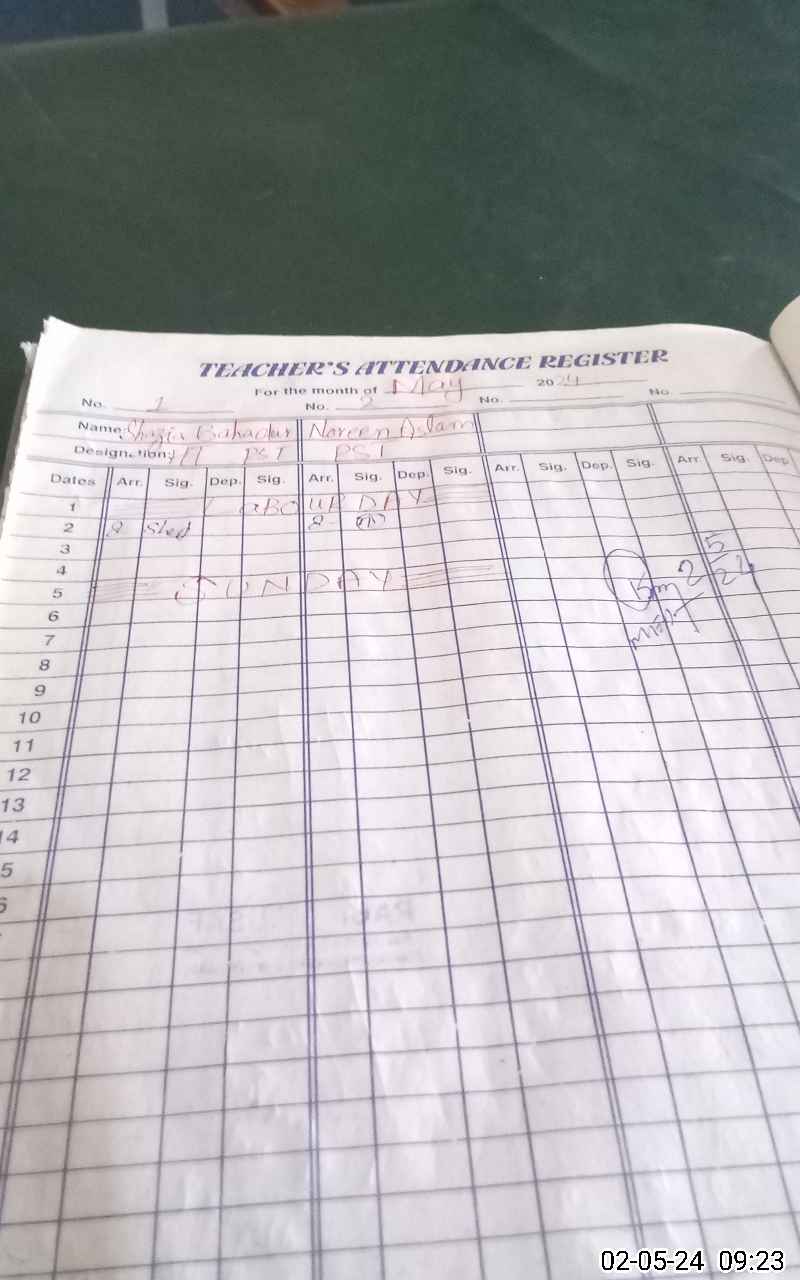 TEACHER'S ATTENDANCE REGISTER
For the month of May 2024
No. 1 No. 2 No. No.
Name: Shazia Bahadur Noreen Aslam
Designation: PST PST
Dates Arr. Sig. Dep. Sig. Arr. Sig. Dep. Sig. Arr. Sig. Dep. Sig. Arr. Sig. Dep
1 LABOUR DAY
2 8 8
3
4
5 SUNDAY
6
7
8
9
10
11
12
13
14
5
6
2 5
24
02-05-24 09:23